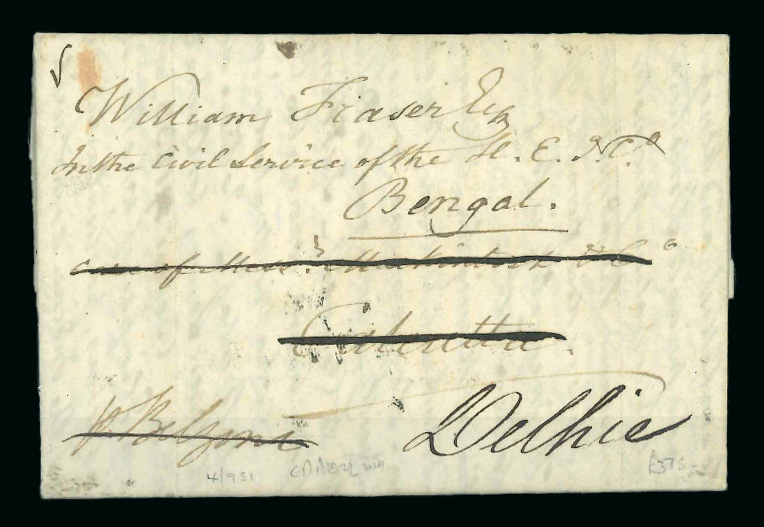 William Fraser Esqr
In the Civil Service of the H. E. I. Co
Bengal.
care of Messrs Mackintosh & Co
Calcutta.
p Belzoni
Delhie
4/931
£375